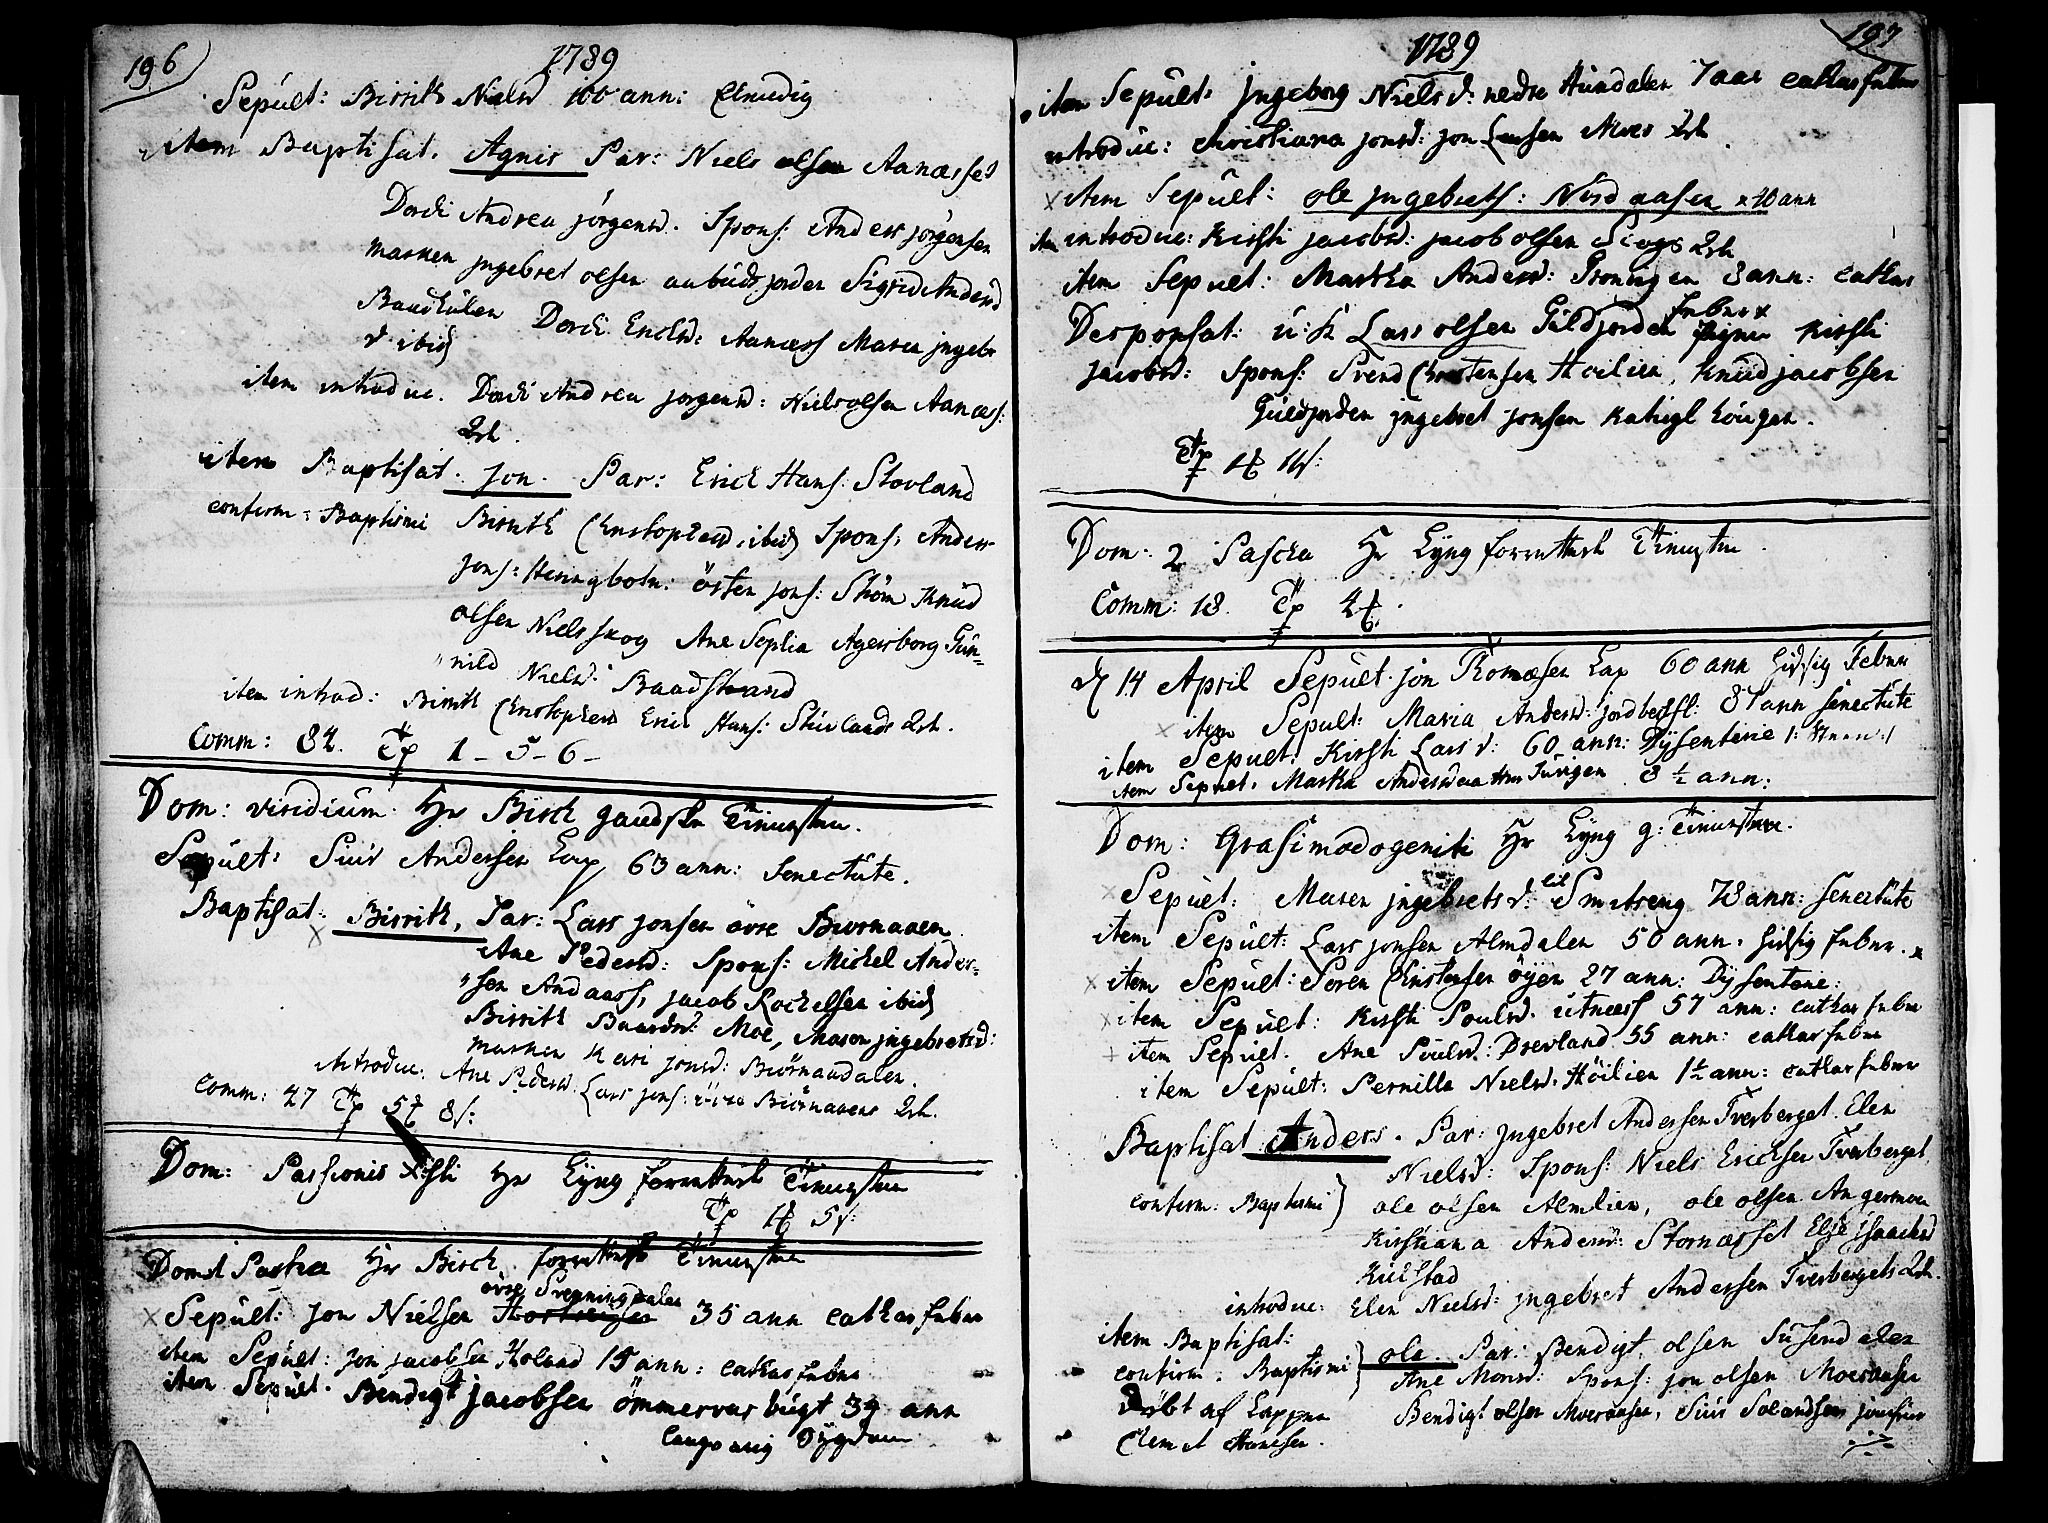 196
1789
Sepult: Birrith Nielsd 100 ann: Elmedig
item Baptisat. Agnis Par: Niels olsen Aanæsset
Dordi Andrea jörgensd. Spons: Anders jörgensen
marken jngebret olsen jorden Sigrid Andersd
Baadhulen Dordi Ericksd: Aanæss Maren jngebr
d ibid
item introduc. Dordi Andrea jorgensd: Niels olsen Aanæs:
2rh.
item Baptisat. jon. Par: Erick Hans: Stovland
confirm: Baptismi Birrith Christophersd ibid Spons: Anders
jons: Heringbotn: östen jons: Ström Knud
olsen Niels skog Ane Sophia Agersborg Gun-
nild Nielsd: Baadstrand
item introd: Birrith Christophersd Erick Hans: Stovlands 2rh.
Comm: 82. Tp 1 - 5 - 6 -
Dom: viridium Hr Birch Tienesten.
Sepult: Siur Andersen Lap 63 ann: Senectute.
Baptisat: Birrith, Par: Lars jonsen övre Biornaaen
Ane Pedersd: Spons: Michel Ander-
sen Andaass, jacob Rochelsen ibid
Birrith Baardsd: Moe, Maren jngebretsd:
marken Kari jonsd: Biörnaadalen.
introduc: Ane Pedersd: Lars jons: övre Biörnaaens 2rh.
Comm: 27 Tp 5 8 s:
Dom: Passionis Xsti Hr Lÿng forrettede Tienesten
Tp 5 s:
Dom 1 Pascha Hr Birch forrettede Tienesten
övre Svenningdalen
Sepult: jon Nielsen 35 ann cathar febre
item Sepult: jon jacobsen Holand 15 ann: cathar febre
item Sepult. Bendigt jacobsen ömmervas bugt 39 ann
langvarig Sÿgdom
197
1789
item Sepult: jngeborg Niels d: nedre Hundalen 7 aar cathar febre
introduc: Christiana jonsd: jon Larsen Moes 2rh.
item Sepult: ole jngebrets: Nordaasen 40 ann
item introduc: Kirsti jacobsd: jacob olsen Skogs 2rh
item Sepult: Martha Andersd: Groningen 8 ann: cathar
febre
Desponsat: u: k Lars olsen Guldjorden Kirsti
jacobsd: Spons: Svend Christensen Höilien, Knud jacobsen
Guldjorden jngebret jonsen hougen.
Tp
Dom: 2 Pascha Hr Lÿng forrettede Tienesten
Comm: 18. Tp
d 14 April Sepult. jon Tomæsen Lap 60 ann hidsig Feber
item Sepult: Maria Andersd: 87 ann senectute
item Sepult: Kirsti Lars d: 60 ann: Dÿsenterie
item Sepult. Martha Andersd 8 ½ ann:
Dom: Qvasimodogeniti Hr Lÿng g: Tienesten.
Sepult: Maren jngebrets d: lil Smitseng 78 ann: senectute
item Sepult: Lars jonsen Almdalen 50 ann. hidsig feber.
item Sepult: Soren Christensen öÿen 27 ann: Dÿsenterie:
item Sepult: Kirsti Poulsd. utnæss 57 ann: cathar febre
item Sepult. Ane Poulsd: Drevland 55 ann: cathar febre
item Sepult: Pernilla Nielsd: Höilien 1½ ann: cathar febre
Baptisat Anders. Par: jngebret Andersen Tverberget Elen
Nielsd: Spons: Niels Ericksen Tverberget
confirm: Baptismi ole olsen Almlien, ole olsen Angermoen
Kirstiana Andersd: Stornæsset Else jsaacksd
Kulstad
introduc: Elen Nielsd: jngebret Andersen Tverbergets 2rh.
item Baptisat:
confirm: Baptismi ole. Par: Bendigt olsen Susendalen
Ane Monsd: Spons: jon olsen Moeraasen
Döbt af Lappen Bendigt olsen Moeraasen, Siur
Clemet